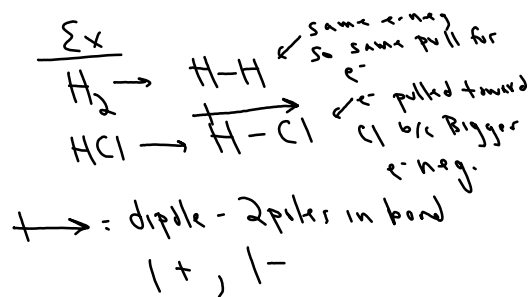 Ex
H2 → H-H same e-neg
so same pull for
e-
HCl → H-Cl e- pulled toward
Cl b/c Bigger
e-neg.
= dipole - 2 poles in bond
1 +, 1 -